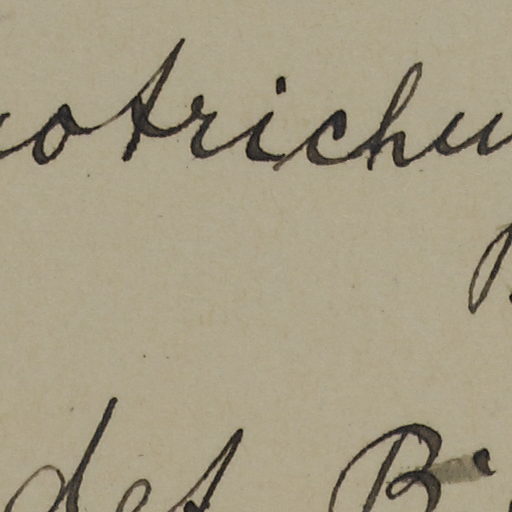 otrichu
det B